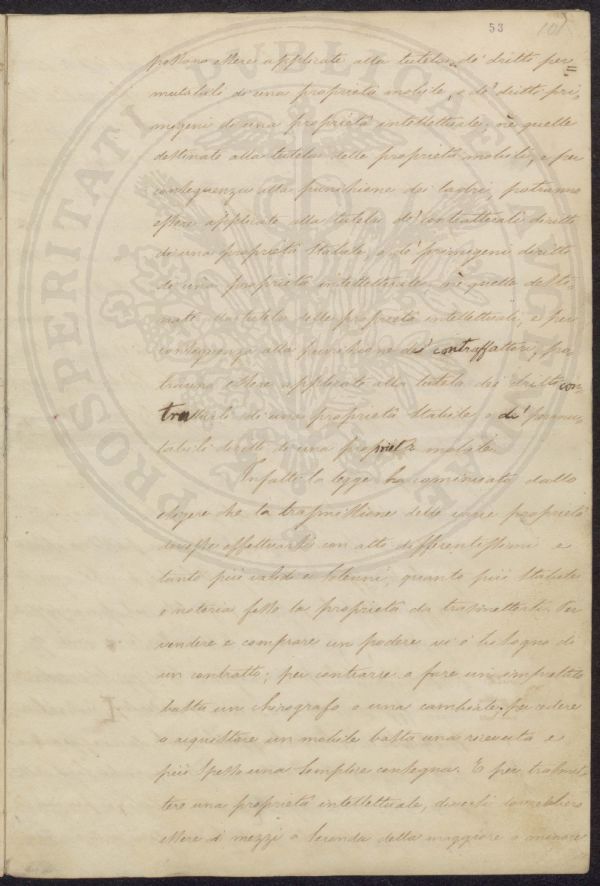 53 101
possano essere applicate alla tutela de' diritti per=
mutabili di una proprietà mobile, o de' diritti pri-
migeni di una proprietà intellettuale, nè quelle
destinate alla tutela delle proprietà mobili, e per
conseguenza alla punizione dei ladri, potranno
essere applicate alla tutela de' contrattuali diritti
di una proprietà stabile, o de' primigeni diritti
di una proprietà intellettuale, nè quelle desti-
nate tutela delle proprietà intellettuali, e per
conseguenza alla punizione de' contraffattori, po-
tranno essere applicate alla tutela dei diritti con-
trattuali di una proprietà stabile, o de' permu-
tabili diritti di una proprietà mobile.
Infatti la legge ha cominciato dallo
esigere che la trasmissione delle varie proprietà
dovesse effettuarsi con atti differentissimi e
tanto più validi e solenni, quanto più stabile
e notoria fosse la proprietà da trasmettersi. Per
vendere e comprare un podere vi è bisogno di
un contratto; per contrarre o fare un imprestito
basta un chirografo o una cambiale; per cedere
o acquistare un mobile basta una ricevuta e
più spesso una semplice consegna. E per trasmet-
tere una proprietà intellettuale, diversi
essere di mezzi a seconda della maggiore o minore
PROSPERITATI PUBLICAE